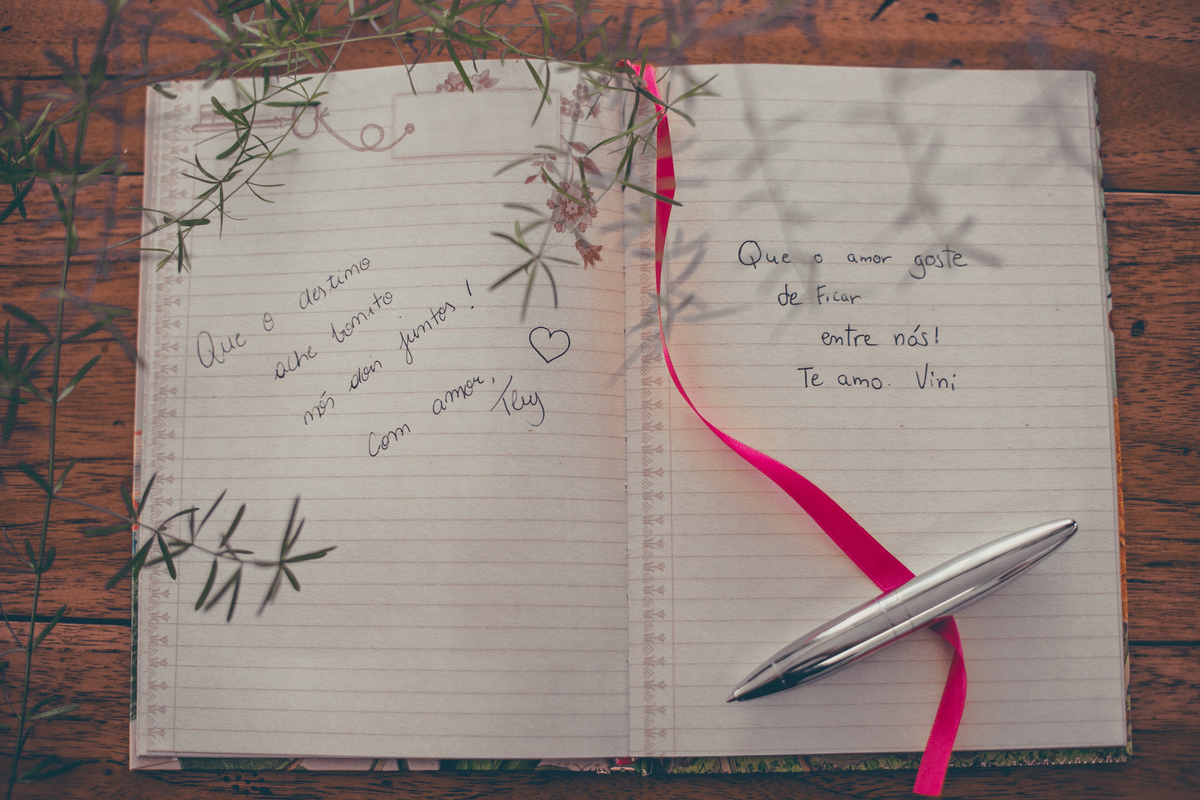 Que o destino
ache bonito
nós dois juntos!
Com amor,
Tey
Que o amor goste
de ficar
entre nós!
Te amo. Vini